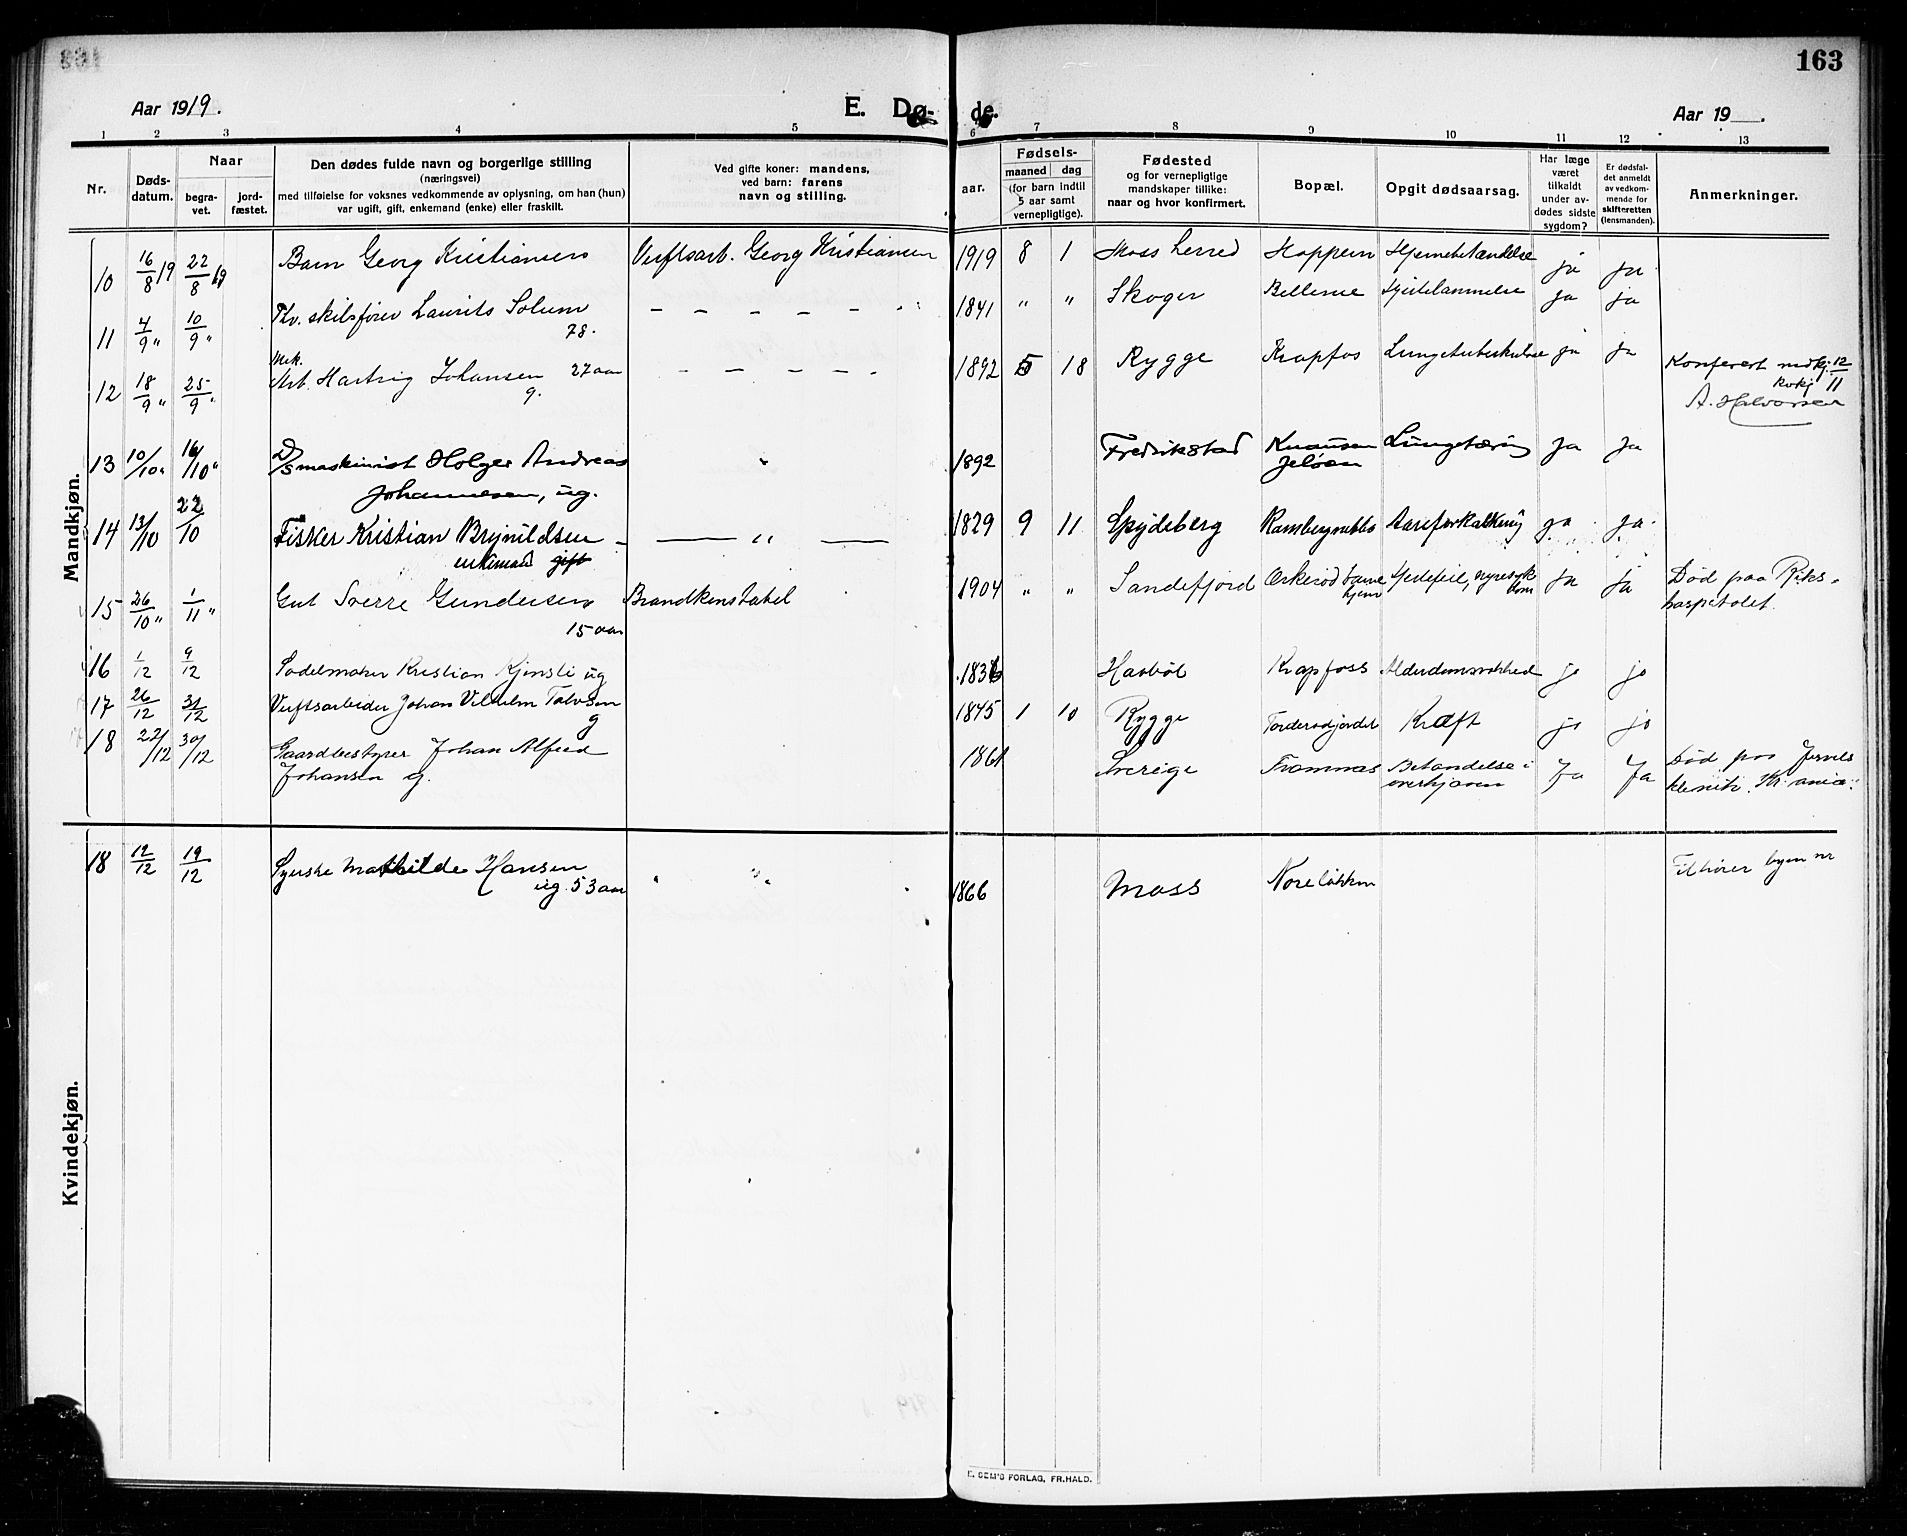 163
Aar 1919.
E. Dø- de.
Aar 19 .
1 2 3 4 5 6 7 8 9 10 11 12 13
Nr.
Døds-
datum.
Naar
begra-
vet.
jord-
fæstet.
Den dødes fulde navn og borgerlige stilling
(næringsvei)
med tilføielse for voksnes vedkommende av oplysning, om han (hun)
var ugift, gift, enkemand (enke) eller fraskilt.
Ved gifte koner: mandens,
ved barn: farens
navn og stilling.
aar.
Fødsels-
maaned dag
(for barn indtil
5 aar samt
vernepligtige).
Fødested
og for vernepligtige
mandskaper tillike:
naar og hvor konfirmert.
Bopæl.
Opgit dødsaarsag.
Har læge
været
tilkaldt
under av-
dødes sidste
sygdom?
Er dødsfal-
det anmeldt
av vedkom-
mende for
skifteretten
(lensmanden).
Anmerkninger.
Mandkjøn.
10 16/8 19 22/8 19 Barn Georg Kristiansen Verftsarb. Georg Kristiansen 1919 8 1 Moss herred Hoppern Hjernebetændelse ja ja
11 4/9 " 10/9 " Thv. skibsfører Laurits Solum 1841 " " Skoger Bellevue Hjertelammelse ja ja
78.
Mek.
12 18/9 " 25/9 " Arb. Hartvig Johansen 27 aar 1892 5 18 Rygge Krapfos Lungetuberkulose ja ja Konferert m. dkj. 12/11
g.
A. Halvorsen
13 10/10 " 16/10 " D/S maskinist Holger Andreas " 1892 Fredrikstad Knausen Lungetæring Ja Ja
Johannesen, ug. Jeløen
14 13/10 22/10 Fisker Kristian Brynildsen " 1829 9 11 Spydeberg Rambergnebba Aareforkalkning ja ja.
enkemand gift
15 26/10 " 1/11 " Gut Sverre Gundersen Brandkonstabel 1904 " " Sandefjord Orkerød barne Hjertefeil, nyresyk ja ja Død paa Riks-
15 aar hjem dom hospitalet.
16 1/12 9/12 Sadelmaker Kristian Kjensli ug 1836 Haabøl Krapfoss Alderdomssvakhed jo jo
17 26/12 31/12 Verftsarbeider Johan Vilhelm Talvsen 1845 1 10 Rygge Torderødjordet Kræft jo jo
g
18 22/12 30/12 Gaardbestyrer Johan Alfred 1861 Sverige Framnæs Betændelse i Ja Ja Død paa Jervels
Johansen g. overkjæven klinik. Kr.ania.
Kvindekjøn.
18 12/12 19/12 Syerske Mathilde Hansen " " 1866 Moss Noreløkken Tilhører byen nr
ug. 53 aar
E. SEM'S FORLAG, FR.HALD.